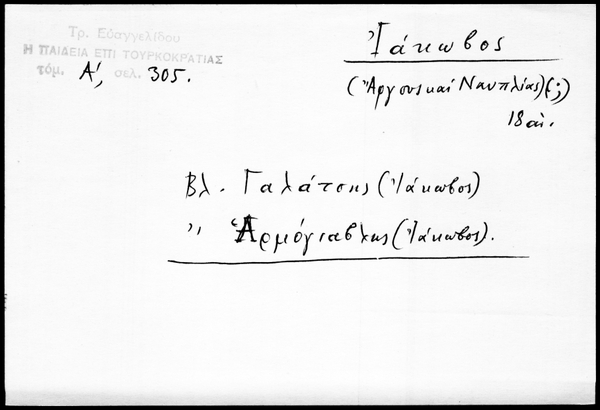 Τρ. Εὐαγγελίδου
Η ΠΑΙΔΕΙΑ ΕΠΙ ΤΟΥΡΚΟΚΡΑΤΙΑΣ
τόμ. Α', σελ. 305.
Ἰάκωβος
(Ἄργους καί Ναυπλίας) (;)
18 αἰ.
Βλ. Γαλάτσης (Ἰάκωβος)
〃 Ἁρμόγιαβλης (Ἰάκωβος).